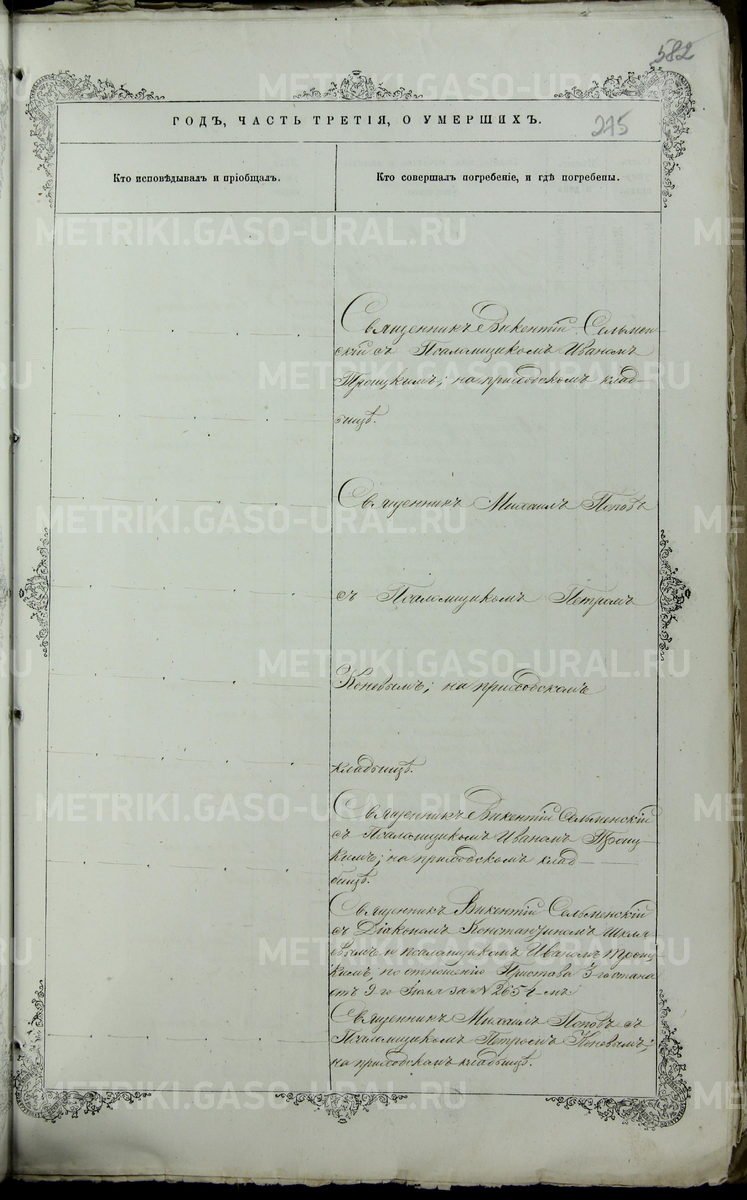 582
ГОДЪ, ЧАСТЬ ТРЕТІЯ, О УМЕРШИХЪ.
215
Кто исповѣдывалъ и пріобщалъ.
Кто совершалъ погребеніе, и гдѣ погребены.
Священникъ Викентій Сельмен
скій съ Псаломщикомъ Иваномъ
Троицкимъ; на приходскомъ клад-
бищѣ.
Священникъ Михаилъ Поповъ
съ Псаломщикомъ Петромъ
Коневымъ; на приходскомъ
кладбищѣ.
Священникъ Викентій Сельменскій
съ Псаломщикомъ Иваномъ Троиц-
кимъ; на приходскомъ клад
бищѣ.
Священникъ Викентій Сельменскій
съ Діакономъ Константиномъ Шкля
евымъ и псаломщикомъ Иваномъ Троиц
кимъ, по отношенію Пристава 3 го стана
отъ 9 го Іюля за № 2654 мъ.
Священникъ Михаилъ Поповъ съ
Псаломщикомъ Петромъ Коневымъ;
на приходскомъ кладбищѣ.
METRIKI.GASO-URAL.RU